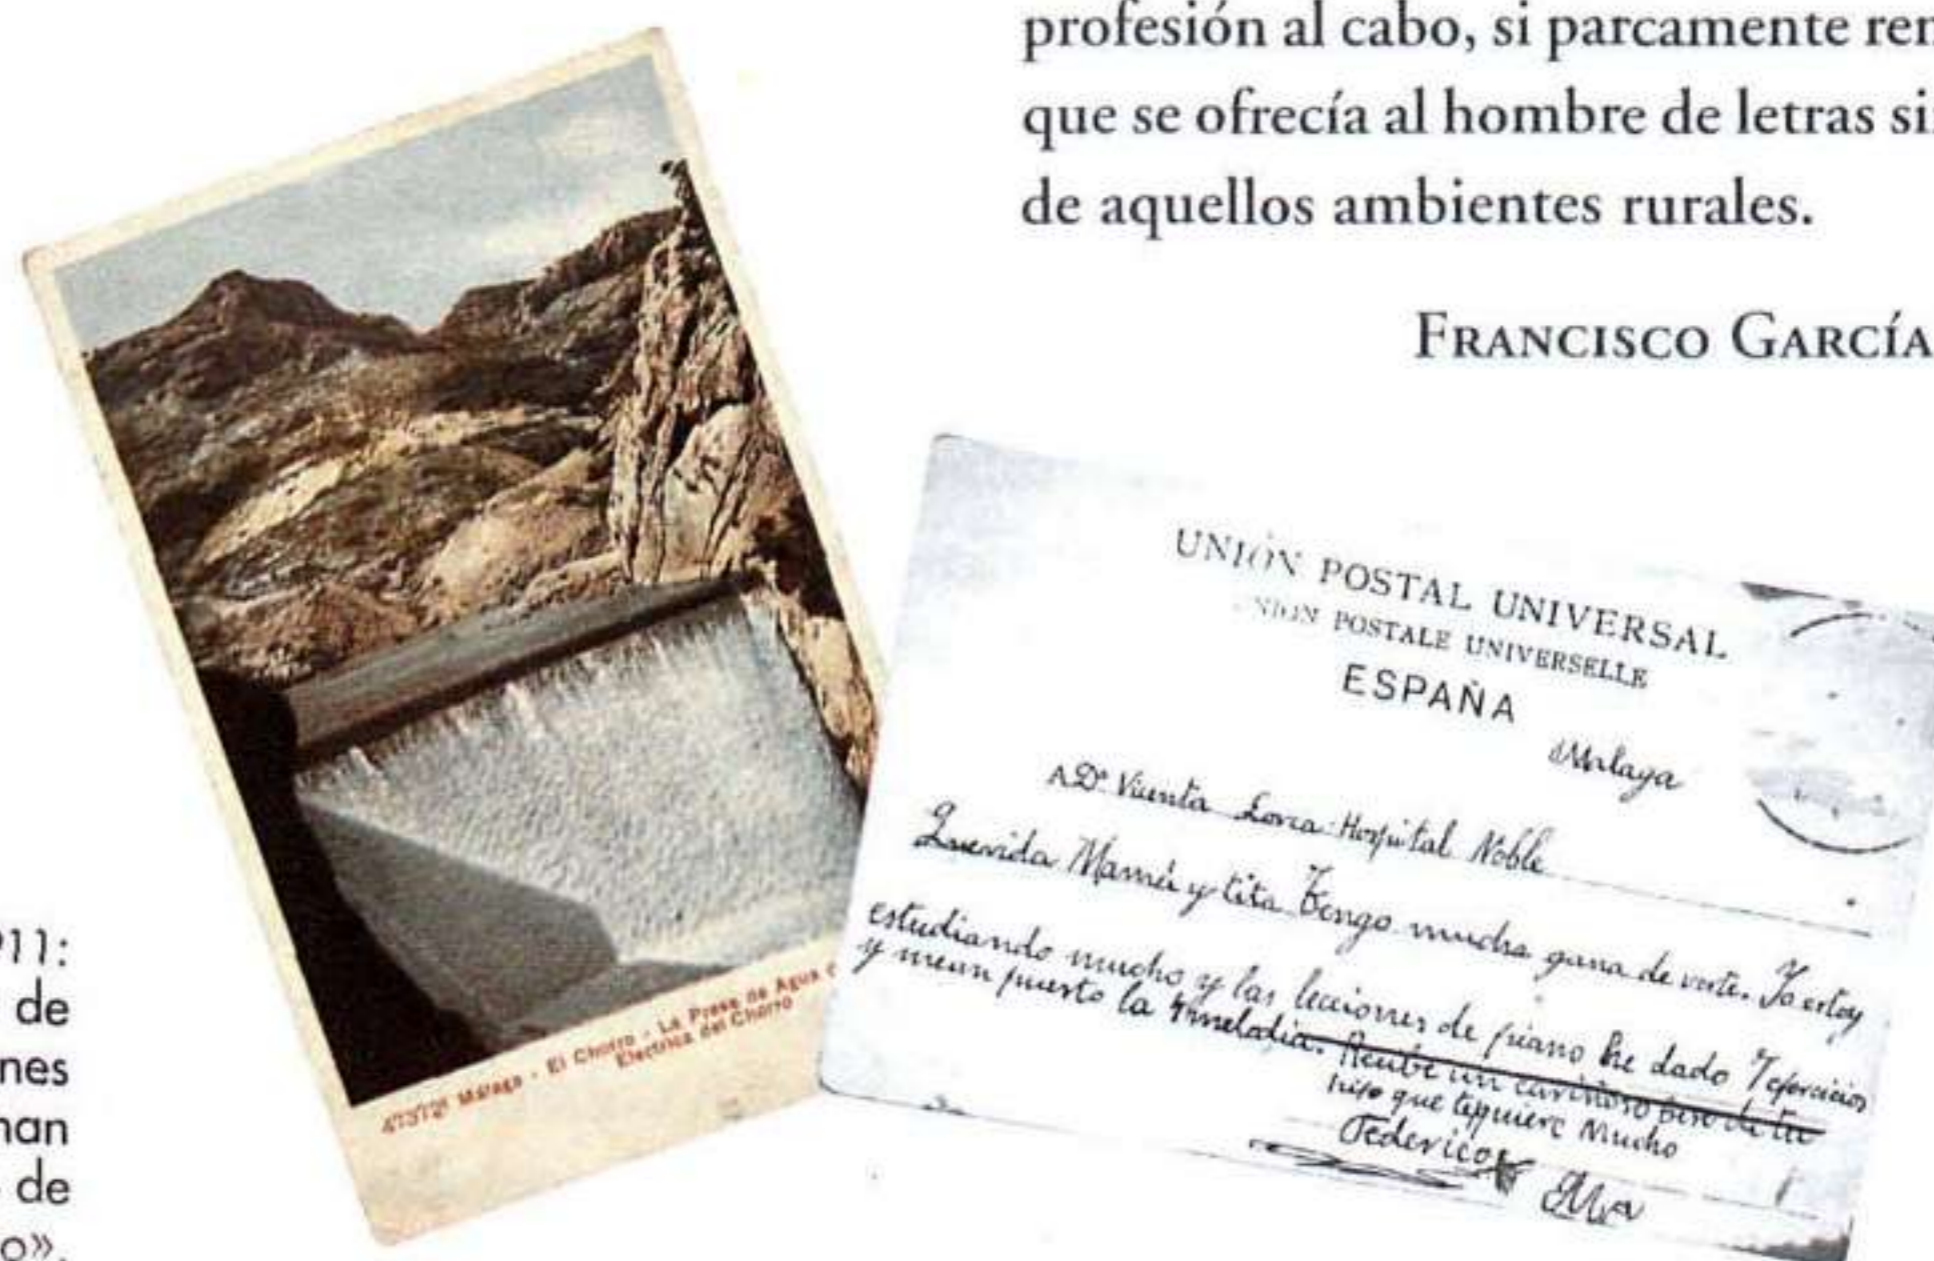 profesión al cabo, si parcamente
que se ofrecía al hombre de letras
de aquellos ambientes rurales.
FRANCISCO GARCÍA
911:
de
nes
nan
de
o».
47372 Málaga - El Chorro - La Presa de Agua
Electrica del Chorro
UNIÓN POSTAL UNIVERSAL
UNION POSTALE UNIVERSELLE
ESPAÑA
Malaga
A Dª Vicenta Lorca Hospital Noble
Querida Mamá y tita Tengo mucha gana de verte. Yo estoy
estudiando mucho y las lecciones de piano he dado 7 ejercicios
y mean puesto la melodia. Recibe un cariñoso beso de tu
hijo que tequiere Mucho
Federico